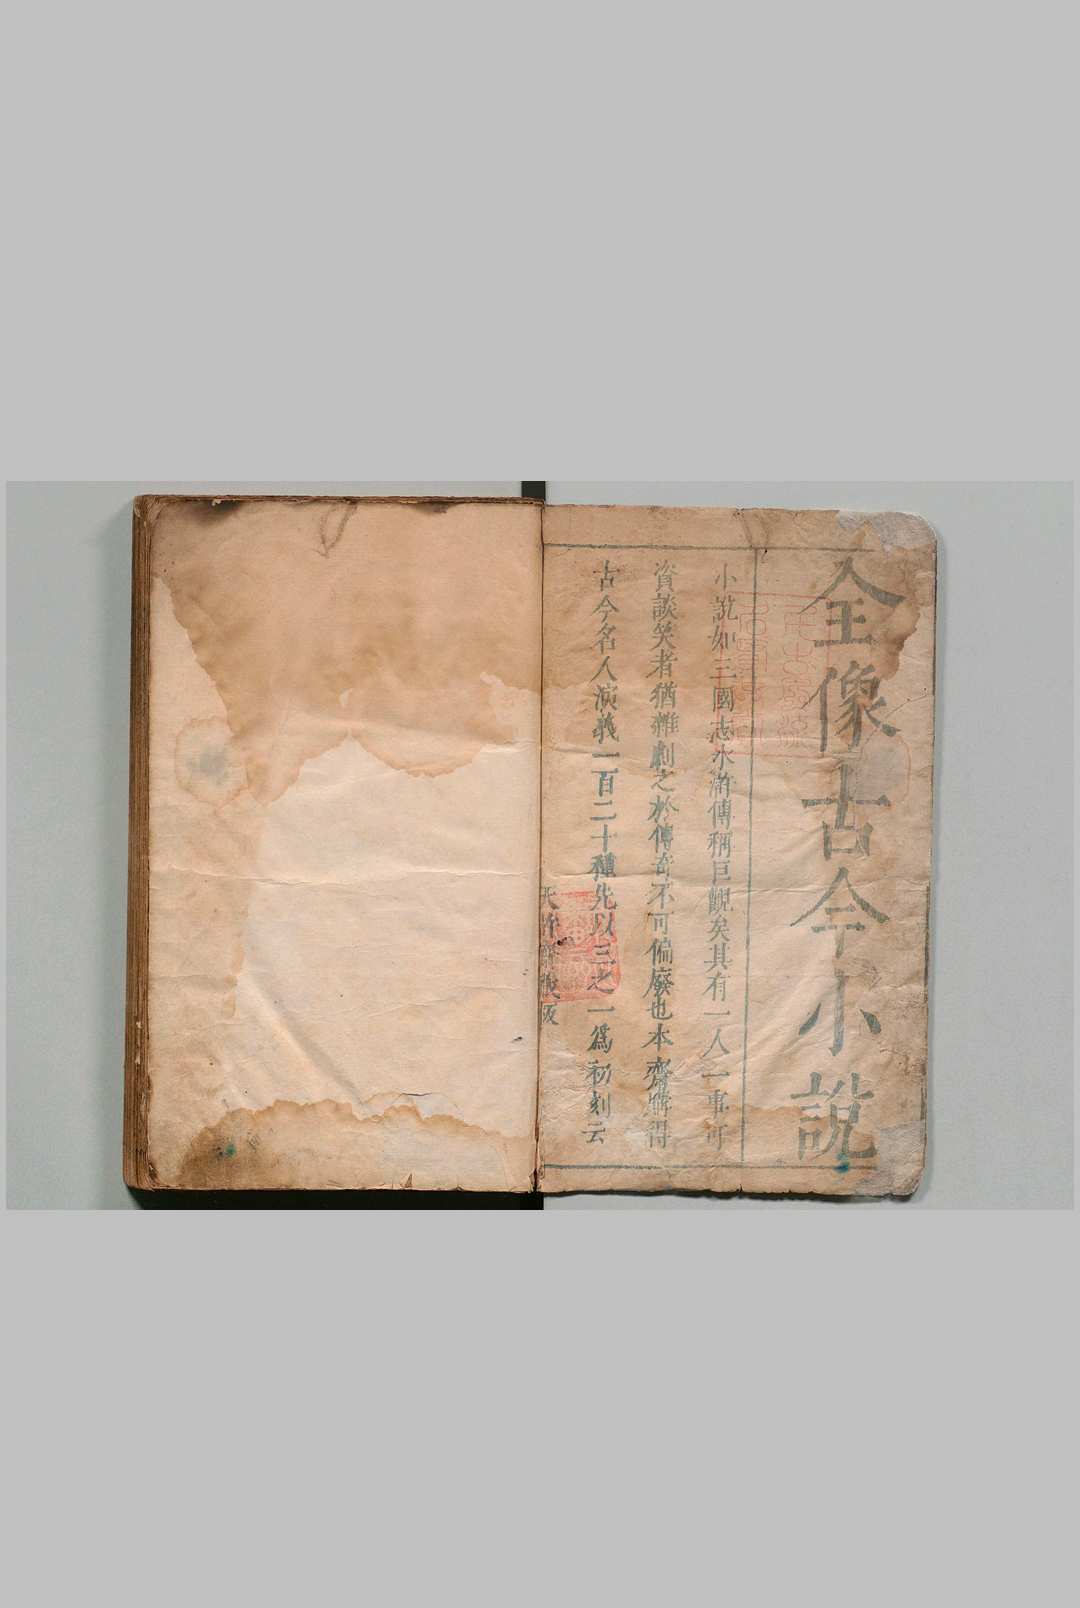 全像古今小說
小說如三國志水滸傳稱巨觀矣其有一人一事可
資談笑者猶雜劇之於傳奇不可偏廢也本齋購得
古今名人演義一百二十種先以三之一為初刻云
天許齋